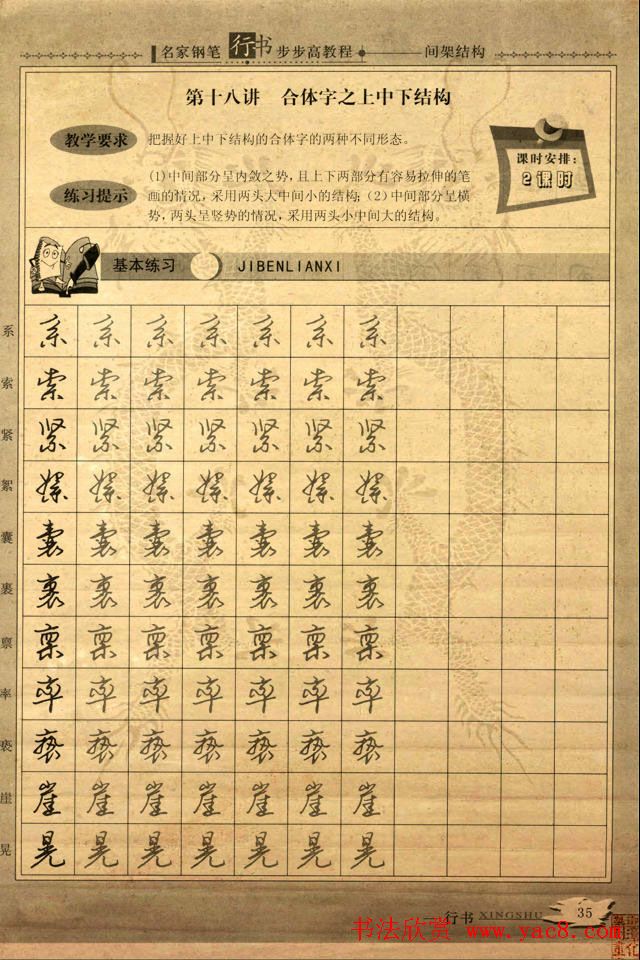 名家钢笔行书步步高教程 间架结构
第十八讲 合体字之上中下结构
教学要求 把握好上中下结构的合体字的两种不同形态。
课时安排：
2课时
练习提示 (1)中间部分呈内敛之势，且上下两部分有容易拉伸的笔
画的情况，采用两头大中间小的结构；(2)中间部分呈横
势，两头呈竖势的情况，采用两头小中间大的结构。
基本练习 JIBENLIANXI
系 系 系 系 系 系 系 系
索 索 索 索 索 索 索 索
紧 紧 紧 紧 紧 紧 紧 紧
絮 絮 絮 絮 絮 絮 絮 絮
囊 囊 囊 囊 囊 囊 囊 囊
裹 裹 裹 裹 裹 裹 裹 裹
禀 禀 禀 禀 禀 禀 禀 禀
率 率 率 率 率 率 率 率
亵 亵 亵 亵 亵 亵 亵 亵
崖 崖 崖 崖 崖 崖 崖 崖
晃 晃 晃 晃 晃 晃 晃 晃
行书 XINGSHU 35
书法欣赏 www.yac8.com